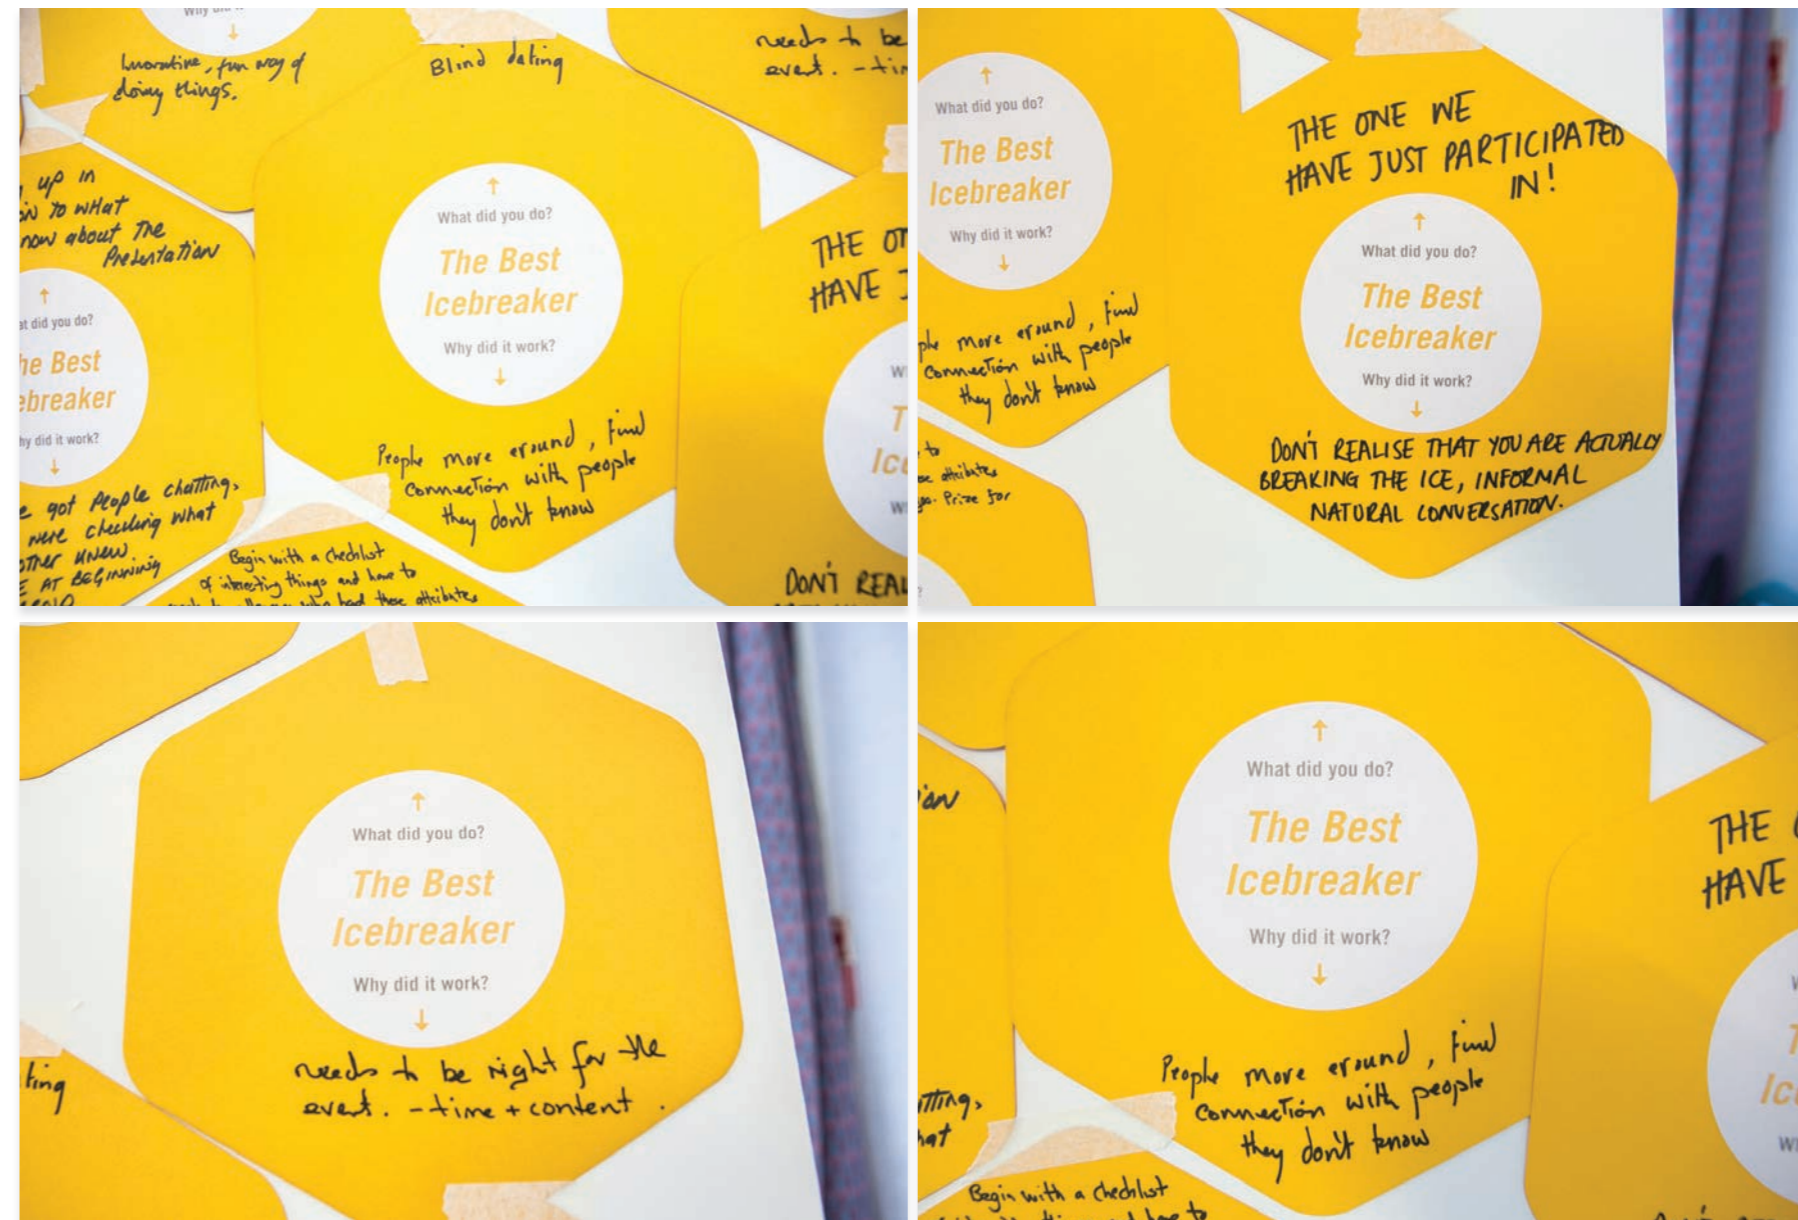 Why did it
↓
Innovative, fun way of
doing things.
Blind dating
needs to be
event. - tim
up in
to what
now about the
Presentation
↑
at did you do?
he Best
ebreaker
hy did it work?
↓
e got People chatting,
were checking what
other knew.
E AT BEGINNING
↑
What did you do?
The Best
Icebreaker
Why did it work?
↓
People more around, find
connection with people
they don't know
Begin with a checklist
of interesting things and have to
who had these attributes
THE ON
HAVE J
W
T
Ic
W
DON'T REAL
↑
What did you do?
The Best
Icebreaker
Why did it work?
↓
ple more around, find
connection with people
they don't know
to
se attributes
Prize for
THE ONE WE
HAVE JUST PARTICIPATED
IN!
↑
What did you do?
The Best
Icebreaker
Why did it work?
↓
DON'T REALISE THAT YOU ARE ACTUALLY
BREAKING THE ICE, INFORMAL
NATURAL CONVERSATION.
↑
What did you do?
The Best
Icebreaker
Why did it work?
↓
needs to be right for the
event. - time + content.
ting
↑
What did you do?
The Best
Icebreaker
Why did it work?
↓
People more around, find
connection with people
they don't know
tting,
hat
Begin with a checklist
have to
THE
HAVE
W
T
Ic
W